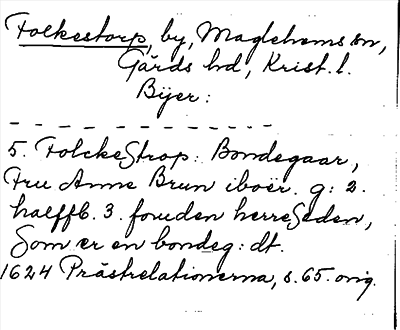 Folkestorp, by, Maglehems sn,
Gärds hd, Krist. l.
Bÿer:
5. FolckeStrop: Bondegaar,
Fru Anne Brun iboër. g: 2.
halffb. 3. foruden herreSeden,
Som er en bondeg: dt.
1624 Prästrelationerna, s. 65. orig.